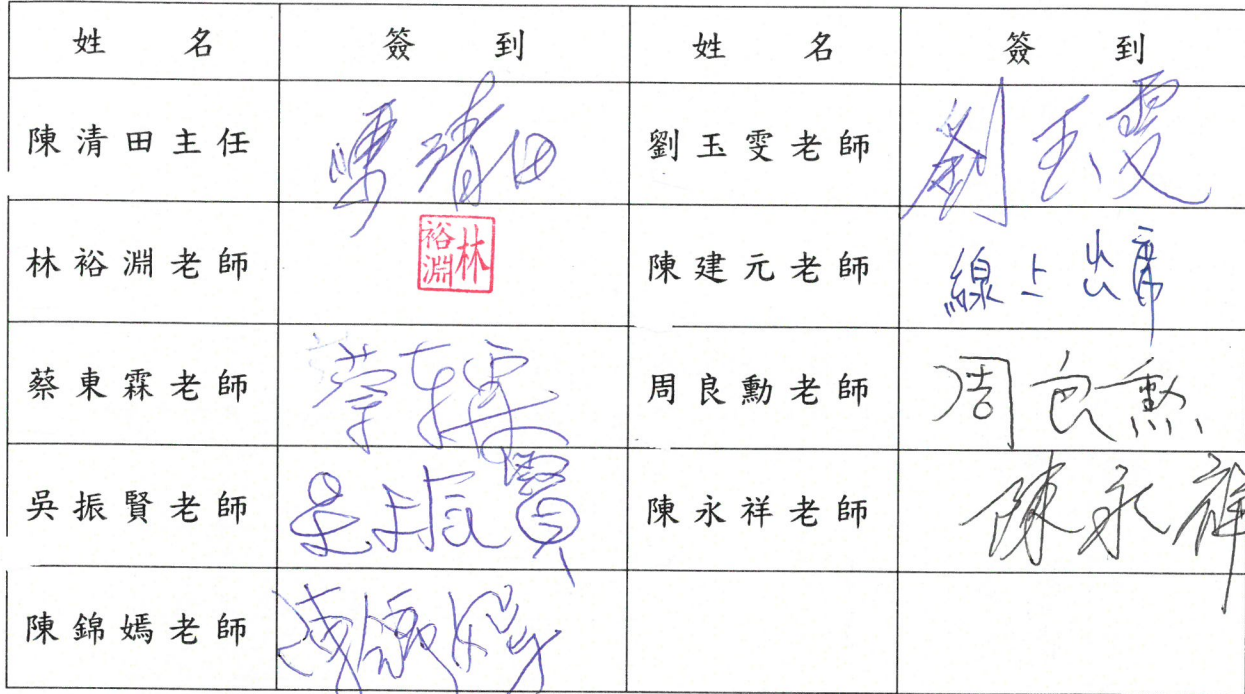 姓 名 簽 到 姓 名 簽 到
陳清田主任 陳清田 劉玉雯老師 劉玉雯
林裕淵老師 林裕淵 陳建元老師 線上出席
蔡東霖老師 蔡東霖 周良勳老師 周良勳
吳振賢老師 吳振賢 陳永祥老師 陳永祥
陳錦嫣老師 陳錦嫣